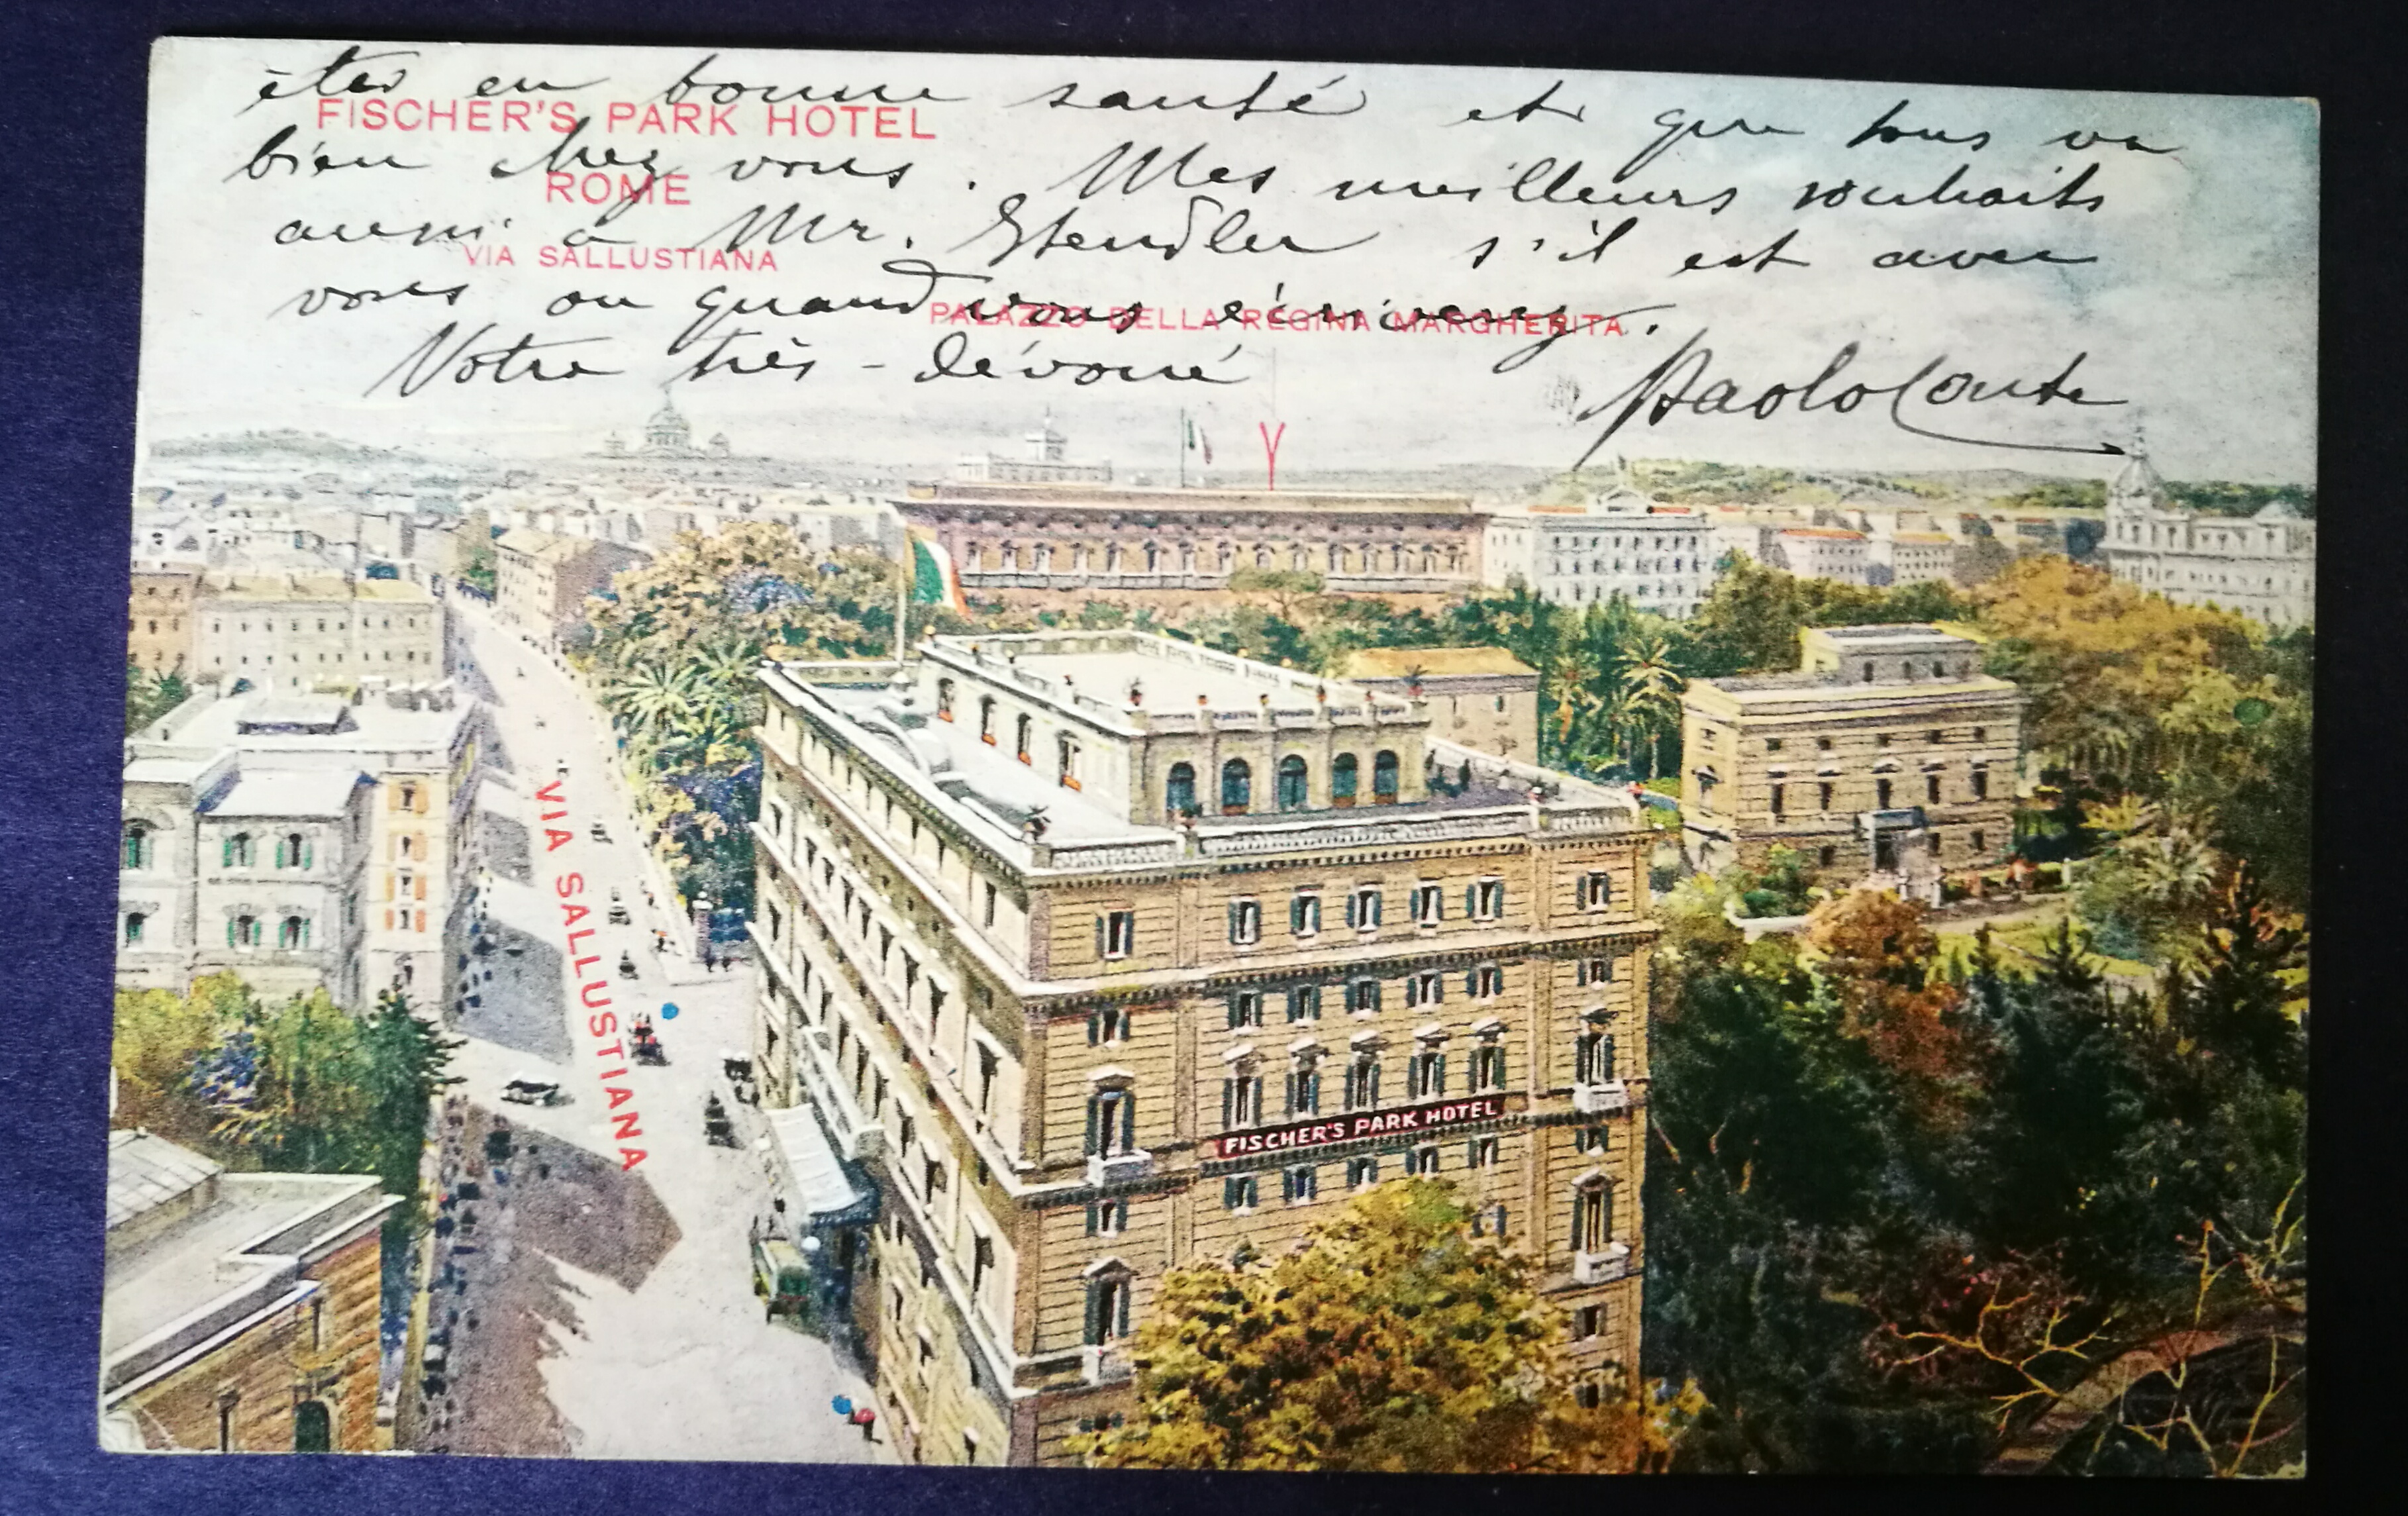 êtes en bonne santé et que tous va
FISCHER'S PARK HOTEL
bien chez vous. Mes meilleurs souhaits
ROME
aussi à Mr. Stendler s'il est avec
VIA SALLUSTIANA
vous ou quand vous écrirez.
PALAZZO DELLA REGINA MARGHERITA
Votre très-dévoué
Paolo Conte
VIA SALLUSTIANA
FISCHER'S PARK HOTEL